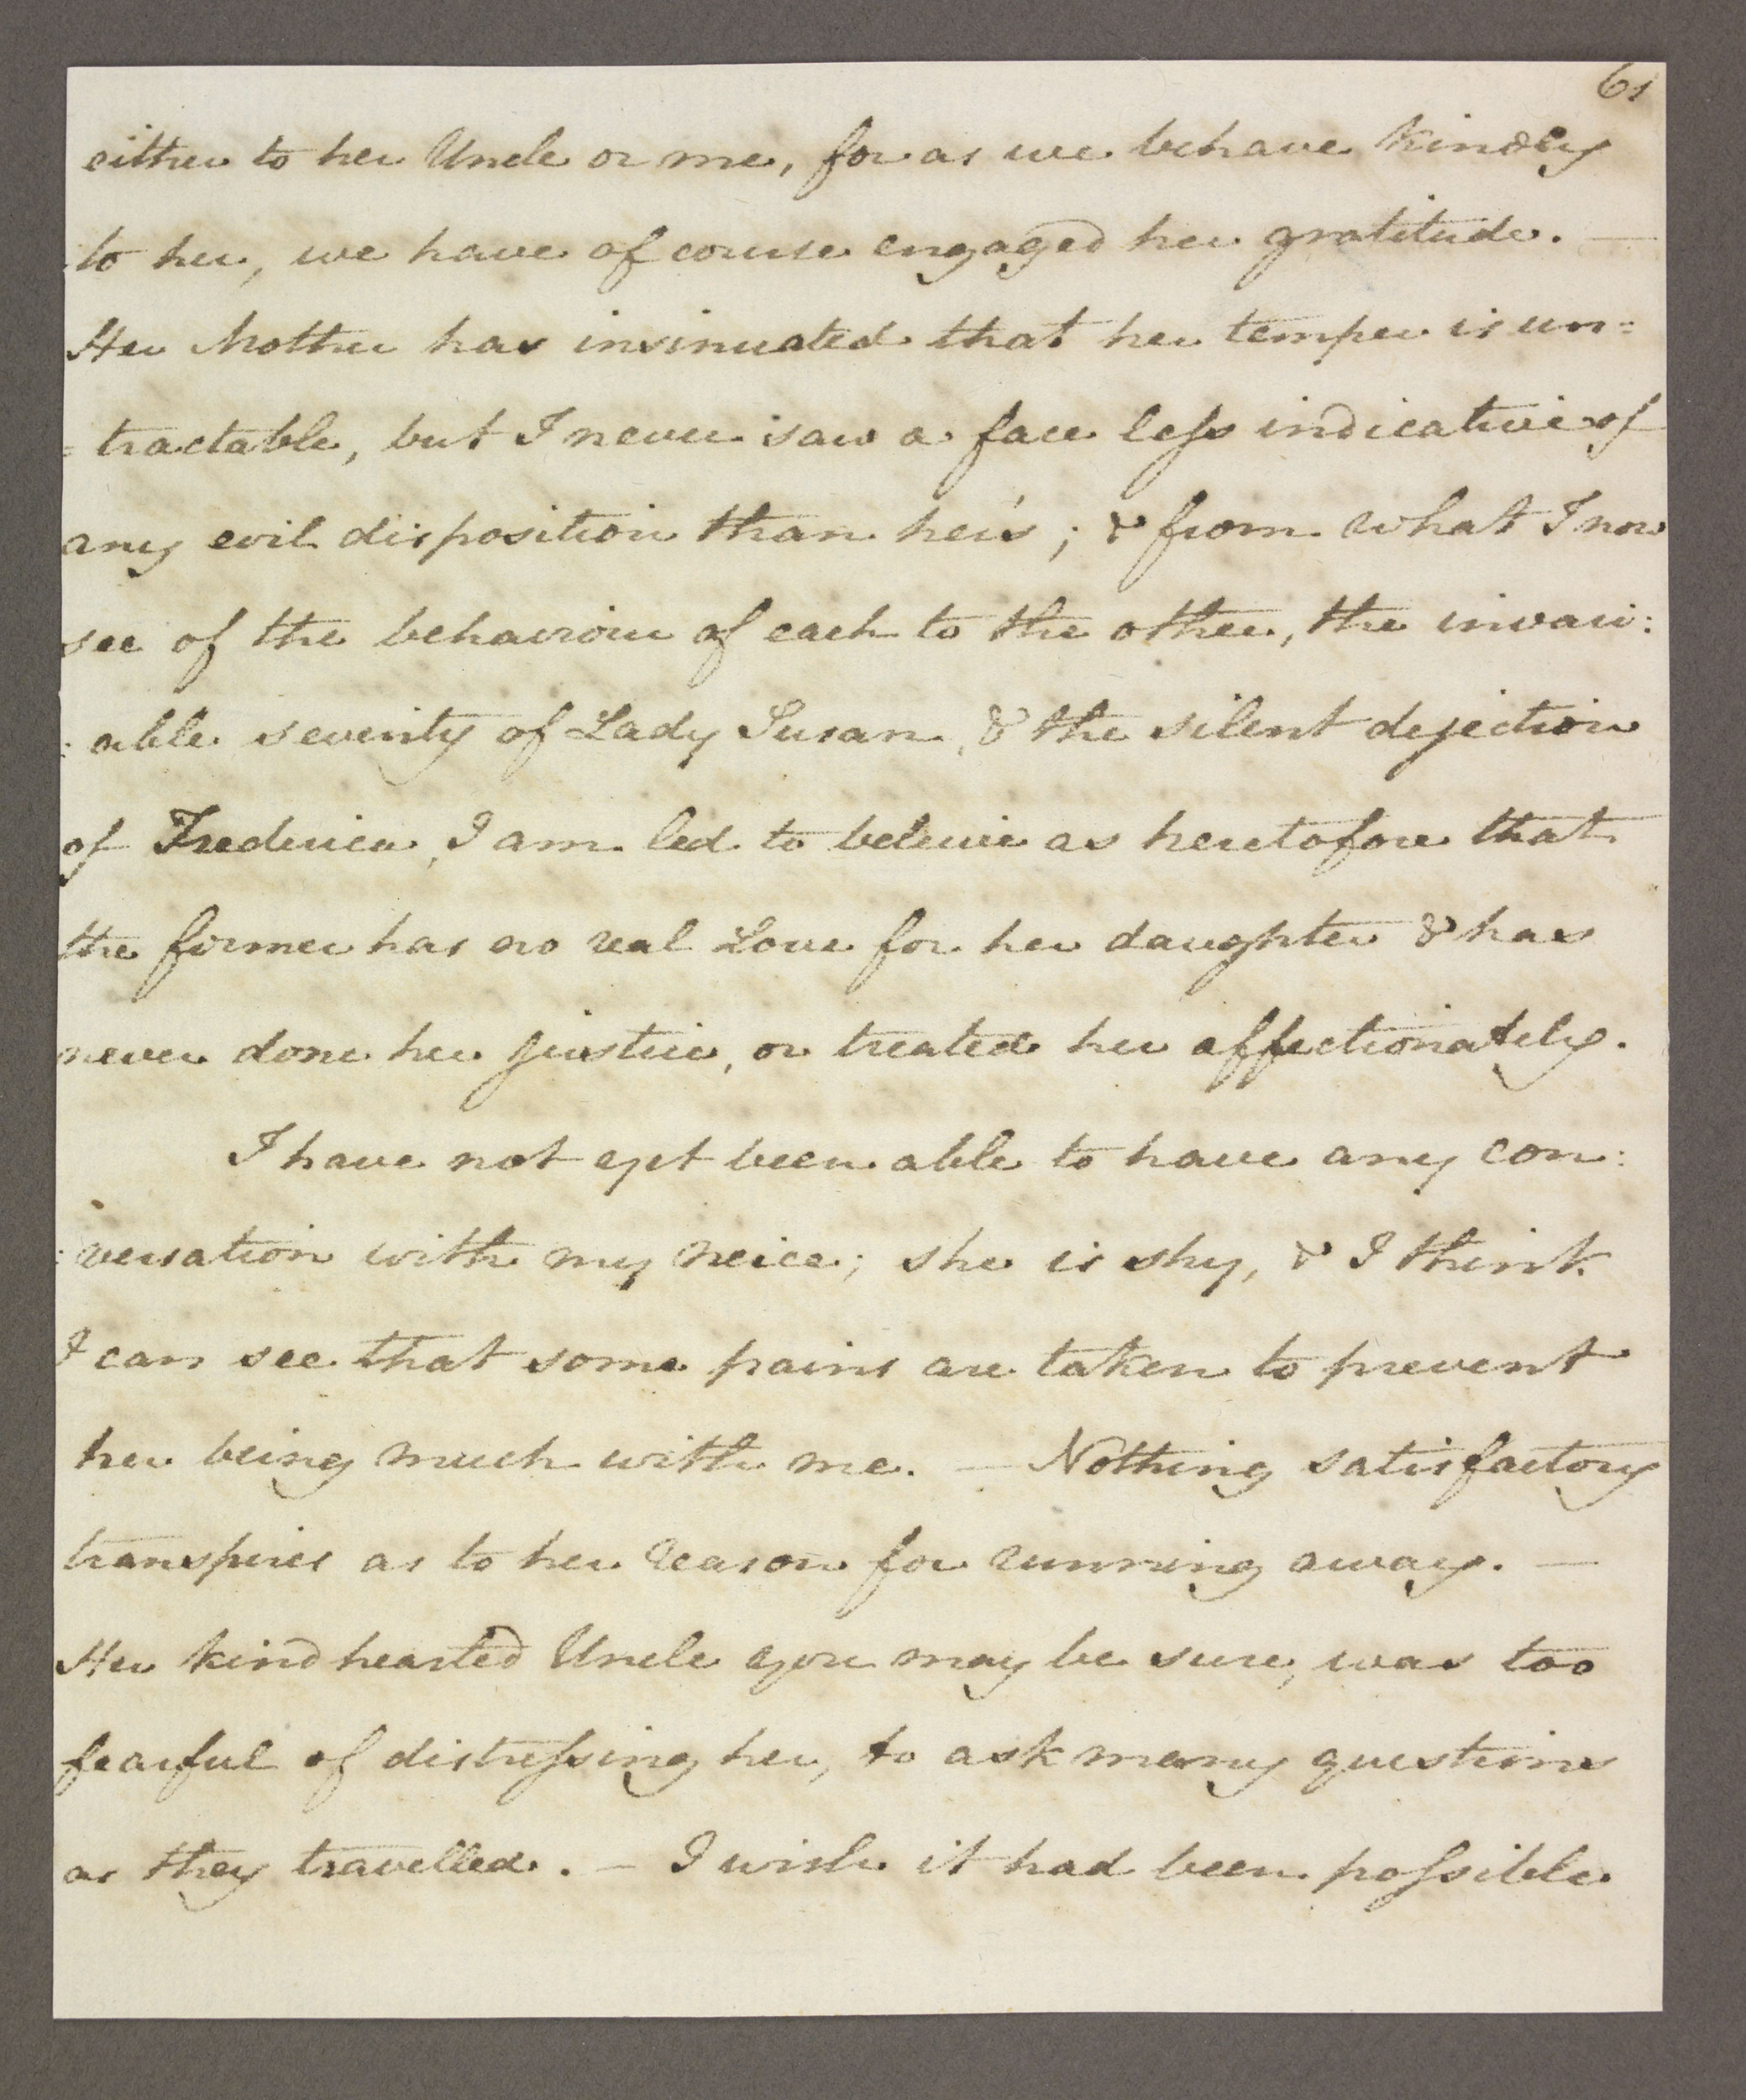 61
either to her Uncle or me, for as we behave kindly
to her, we have of course engaged her gratitude. —
Her Mother has insinuated that her temper is un=
=tractable, but I never saw a face leſs indicative of
any evil disposition than her's; & from what I now
see of the behaviour of each to the other, the invari:
:able severity of Lady Susan, & the silent dejection
of Frederica, I am led to beleive as heretofore that
the former has no real Love for her daughter & has
never done her justice, or treated her affectionately.
I have not yet been able to have any con:
:versation with my neice; she is shy, & I think
I can see that some pains are taken to prevent
her being much with me. — Nothing satisfactory
transpires as to her reason for running away. —
Her kindhearted Uncle you may be sure, was too
fearful of distreſsing her, to ask many questions
as they travelled. — I wish it had been poſsible